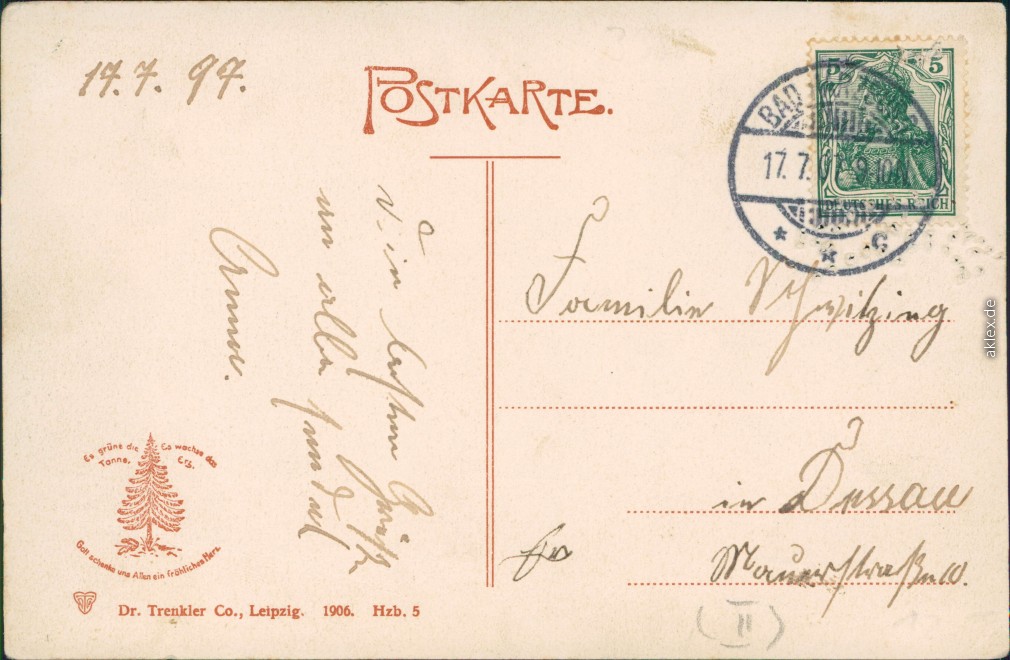 17.7.97.
POSTKARTE.
5 5
BAD
17.7.0 9-10
DEUTSCHES REICH
* * c
Die besten Grüße
an alle sendet
Anna.
Familie
in Dessau
Mauerstraße
Es grüne die Tanne,
Es wachse das Erz,
Gott schenke uns Allen ein fröhliches Herz.
Dr. Trenkler Co., Leipzig. 1906. Hzb. 5
(II)
aklex.de